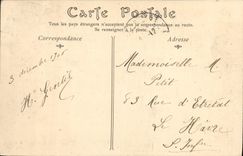 Carte Postale
Tous les pays étrangers n'acceptent pas la correspondance au recto.
Se renseigner à la poste.
Correspondance
Adresse
3 décembre
H. Gentil
Mademoiselle M
Petit
83 Rue d'Etretat
Le Hâvre
S. Infre